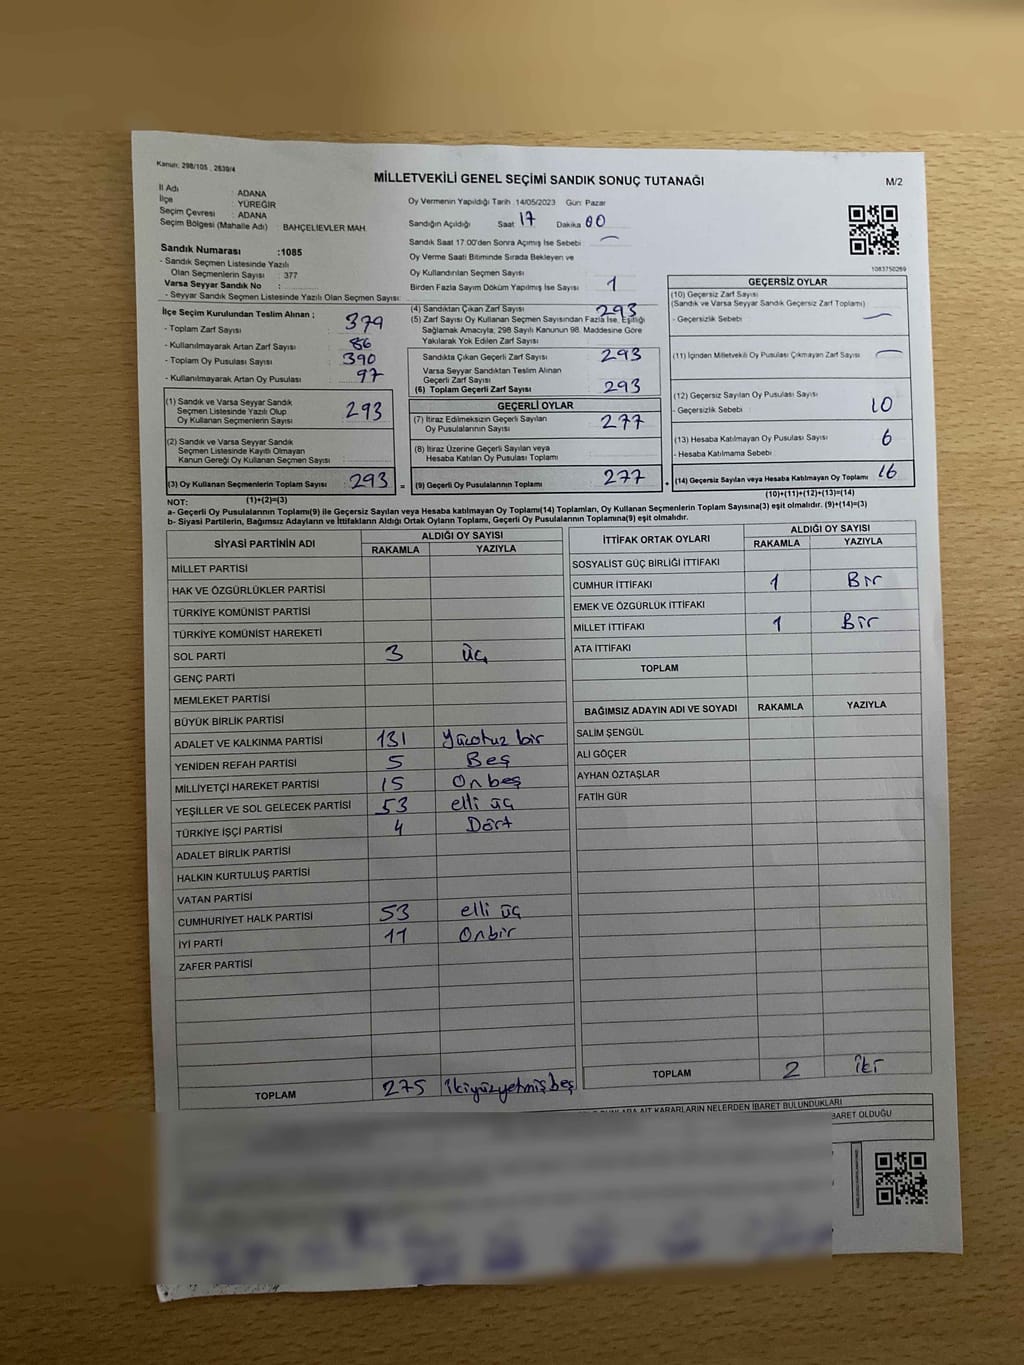 Kanun: 298/105 , 2839/4
MİLLETVEKİLİ GENEL SEÇİMİ SANDIK SONUÇ TUTANAĞI
M/2
İl Adı : ADANA
İlçe : YÜREĞİR
Seçim Çevresi : ADANA
Seçim Bölgesi (Mahalle Adı) : BAHÇELİEVLER MAH.
Sandık Numarası :1085
- Sandık Seçmen Listesinde Yazılı
Olan Seçmenlerin Sayısı : 377
Varsa Seyyar Sandık No :
- Seyyar Sandık Seçmen Listesinde Yazılı Olan Seçmen Sayısı:
İlçe Seçim Kurulundan Teslim Alınan ;
- Toplam Zarf Sayısı : 379
- Kullanılmayarak Artan Zarf Sayısı : 86
- Toplam Oy Pusulası Sayısı : 390
- Kullanılmayarak Artan Oy Pusulası : 97
(1) Sandık ve Varsa Seyyar Sandık
Seçmen Listesinde Yazılı Olup
Oy Kullanan Seçmenlerin Sayısı : 293
(2) Sandık ve Varsa Seyyar Sandık
Seçmen Listesinde Kayıtlı Olmayan
Kanun Gereği Oy Kullanan Seçmen Sayısı :
(3) Oy Kullanan Seçmenlerin Toplam Sayısı : 293
(1)+(2)=(3)
Oy Vermenin Yapıldığı Tarih :14/05/2023 Gün: Pazar
Sandığın Açıldığı Saat 17 Dakika 00
Sandık Saat 17.00'den Sonra Açımış İse Sebebi
Oy Verme Saati Bitiminde Sırada Bekleyen ve
Oy Kullandırılan Seçmen Sayısı
Birden Fazla Sayım Döküm Yapılmış İse Sayısı 1
(4) Sandıktan Çıkan Zarf Sayısı 293
(5) Zarf Sayısı Oy Kullanan Seçmen Sayısından Fazla İse, Eşitliği
Sağlamak Amacıyla; 298 Sayılı Kanunun 98. Maddesine Göre
Yakılarak Yok Edilen Zarf Sayısı
Sandıkta Çıkan Geçerli Zarf Sayısı 293
Varsa Seyyar Sandıktan Teslim Alınan
Geçerli Zarf Sayısı
(6) Toplam Geçerli Zarf Sayısı 293
GEÇERLİ OYLAR
(7) İtiraz Edilmeksizin Geçerli Sayılan
Oy Pusulalarının Sayısı 277
(8) İtiraz Üzerine Geçerli Sayılan veya
Hesaba Katılan Oy Pusulası Toplamı
= (9) Geçerli Oy Pusulalarının Toplamı 277
1083750269
GEÇERSİZ OYLAR
(10) Geçersiz Zarf Sayısı
(Sandık ve Varsa Seyyar Sandık Geçersiz Zarf Toplamı)
- Geçersizlik Sebebi :
(11) İçinden Milletvekili Oy Pusulası Çıkmayan Zarf Sayısı
(12) Geçersiz Sayılan Oy Pusulası Sayısı
- Geçersizlik Sebebi : 10
(13) Hesaba Katılmayan Oy Pusulası Sayısı 6
- Hesaba Katılmama Sebebi :
+ (14) Geçersiz Sayılan veya Hesaba Katılmayan Oy Toplamı 16
(10)+(11)+(12)+(13)=(14)
NOT:
a- Geçerli Oy Pusulalarının Toplamı(9) ile Geçersiz Sayılan veya Hesaba katılmayan Oy Toplamı(14) Toplamları, Oy Kullanan Seçmenlerin Toplam Sayısına(3) eşit olmalıdır. (9)+(14)=(3)
b- Siyasi Partilerin, Bağımsız Adayların ve İttifakların Aldığı Ortak Oyların Toplamı, Geçerli Oy Pusulalarının Toplamına(9) eşit olmalıdır.
SİYASİ PARTİNİN ADI ALDIĞI OY SAYISI
RAKAMLA YAZIYLA
MİLLET PARTİSİ
HAK VE ÖZGÜRLÜKLER PARTİSİ
TÜRKİYE KOMÜNİST PARTİSİ
TÜRKİYE KOMÜNİST HAREKETİ
SOL PARTİ 3 üç
GENÇ PARTİ
MEMLEKET PARTİSİ
BÜYÜK BİRLİK PARTİSİ
ADALET VE KALKINMA PARTİSİ 131 Yüzotuz bir
YENİDEN REFAH PARTİSİ 5 Beş
MİLLİYETÇİ HAREKET PARTİSİ 15 Onbeş
YEŞİLLER VE SOL GELECEK PARTİSİ 53 elli üç
TÜRKİYE İŞÇİ PARTİSİ 4 Dört
ADALET BİRLİK PARTİSİ
HALKIN KURTULUŞ PARTİSİ
VATAN PARTİSİ
CUMHURİYET HALK PARTİSİ 53 elli üç
İYİ PARTİ 11 Onbir
ZAFER PARTİSİ
TOPLAM 275 ikiyüzyetmişbeş
İTTİFAK ORTAK OYLARI ALDIĞI OY SAYISI
RAKAMLA YAZIYLA
SOSYALİST GÜÇ BİRLİĞİ İTTİFAKI
CUMHUR İTTİFAKI 1 Bir
EMEK VE ÖZGÜRLÜK İTTİFAKI
MİLLET İTTİFAKI 1 Bir
ATA İTTİFAKI
TOPLAM
BAĞIMSIZ ADAYIN ADI VE SOYADI RAKAMLA YAZIYLA
SALİM ŞENGÜL
ALİ GÖÇER
AYHAN ÖZTAŞLAR
FATİH GÜR
TOPLAM 2 iki
AİT KARARLARIN NELERDEN İBARET BULUNDUKLARI
BARET OLDUĞU